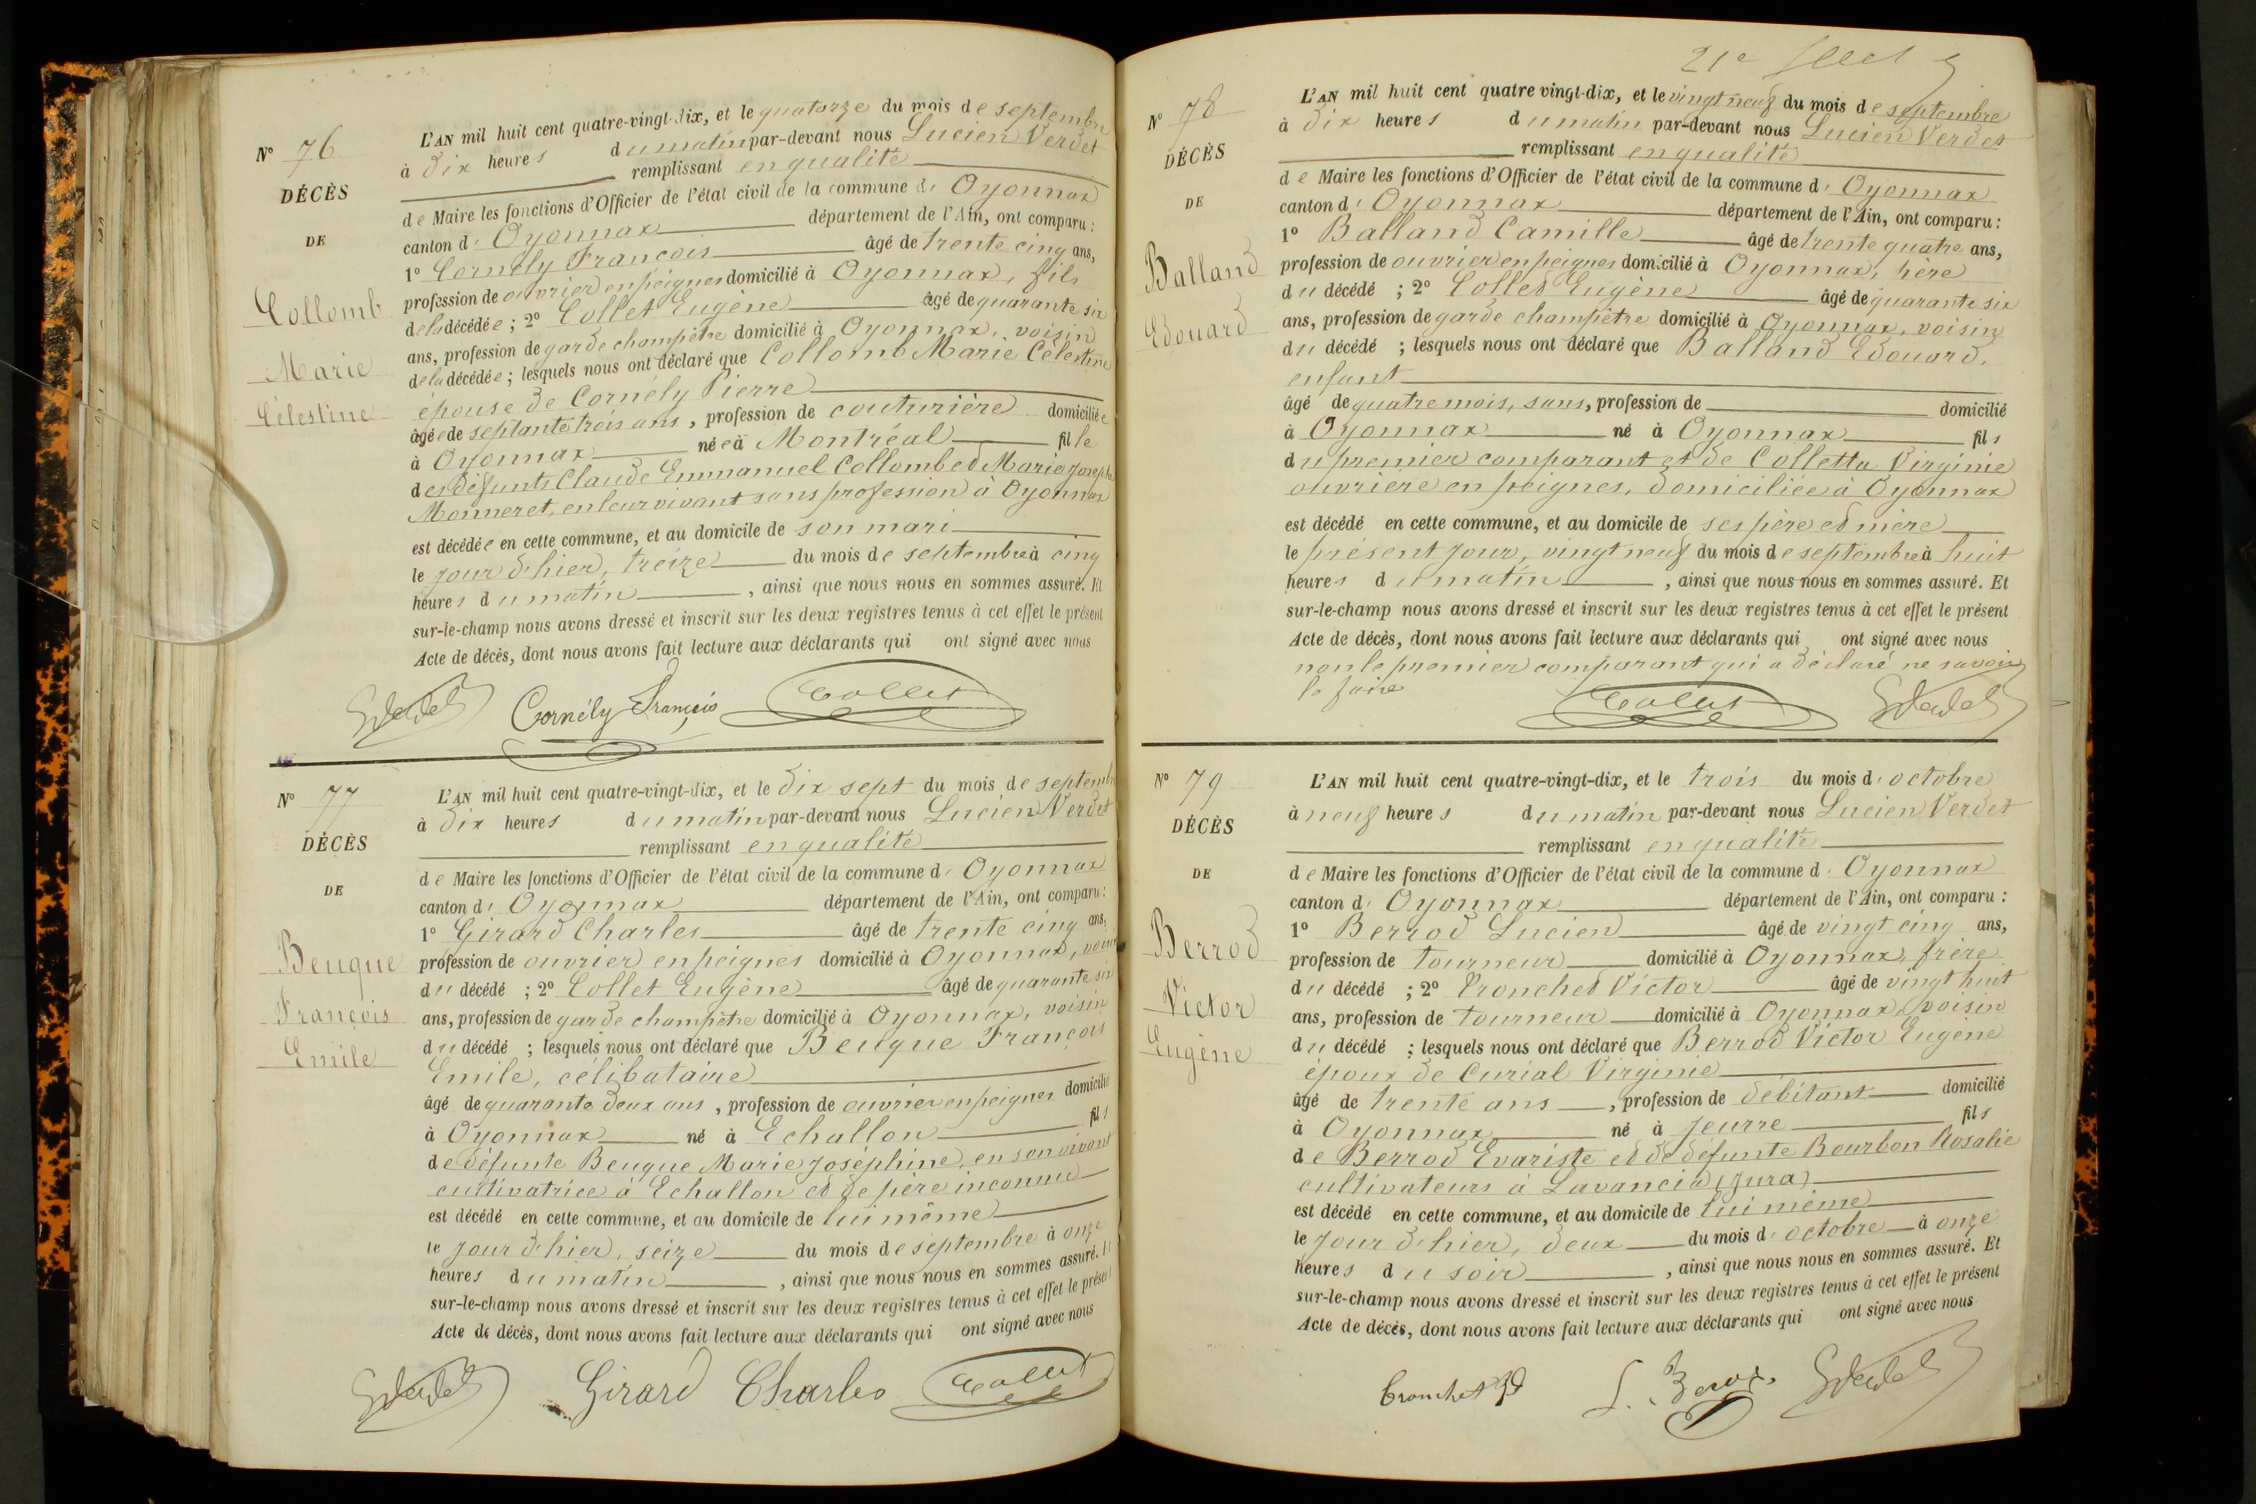 N° 76
DÉCÈS
DE
Collomb
Marie
Célestine
L'AN mil huit cent quatre-vingt-dix, et le quatorze du mois de septembre
à dix heures du matin par-devant nous Lucien Verdet
remplissant en qualité
de Maire les fonctions d'Officier de l'état civil de la commune d' Oyonnax
canton d' Oyonnax département de l'Ain, ont comparu :
1° Cornély François âgé de trente cinq ans,
profession de ouvrier en peignes domicilié à Oyonnax, fils
de la décédée ; 2° Collet Eugène âgé de quarante six
ans, profession de garde champêtre domicilié à Oyonnax, voisin
de la décédée ; lesquels nous ont déclaré que Collomb Marie Célestine
épouse de Cornély Pierre
âgée de septante trois ans, profession de couturière domiciliée
à Oyonnax née à Montréal fille
des défunts Claude Emmanuel Collomb et Marie Josephte
Monneret, en leur vivant sans profession à Oyonnax
est décédée en cette commune, et au domicile de son mari
le jour d'hier, treize du mois de septembre à cinq
heures du matin, ainsi que nous nous en sommes assuré. Et
sur-le-champ nous avons dressé et inscrit sur les deux registres tenus à cet effet le présent
Acte de décès, dont nous avons fait lecture aux déclarants qui ont signé avec nous
Cornély François Collet
N° 77
DÉCÈS
DE
Beuque
François
Emile
L'AN mil huit cent quatre-vingt-dix, et le dix sept du mois de septembre
à dix heures du matin par-devant nous Lucien Verdet
remplissant en qualité
de Maire les fonctions d'Officier de l'état civil de la commune d' Oyonnax
canton d' Oyonnax département de l'Ain, ont comparu :
1° Girard Charles âgé de trente cinq ans,
profession de ouvrier en peignes domicilié à Oyonnax, voisin
du décédé ; 2° Collet Eugène âgé de quarante six
ans, profession de garde champêtre domicilié à Oyonnax, voisin
du décédé ; lesquels nous ont déclaré que Beuque François
Emile, célibataire
âgé de quarante deux ans, profession de ouvrier en peignes domicilié
à Oyonnax né à Echallon fils
de défunte Beuque Marie Joséphine, en son vivant
cultivatrice à Echallon et de père inconnu
est décédé en cette commune, et au domicile de lui même
le jour d'hier, seize du mois de septembre à onze
heures du matin, ainsi que nous nous en sommes assuré. Et
sur-le-champ nous avons dressé et inscrit sur les deux registres tenus à cet effet le présent
Acte de décès, dont nous avons fait lecture aux déclarants qui ont signé avec nous
Girard Charles Collet
21e
N° 78
DÉCÈS
DE
Balland
Edouard
L'AN mil huit cent quatre vingt-dix, et le vingt neuf du mois de septembre
à dix heures du matin par-devant nous Lucien Verdet
remplissant en qualité
de Maire les fonctions d'Officier de l'état civil de la commune d' Oyonnax
canton d' Oyonnax département de l'Ain, ont comparu :
1° Balland Camille âgé de trente quatre ans,
profession de ouvrier en peignes domicilié à Oyonnax, père
du décédé ; 2° Collet Eugène âgé de quarante six
ans, profession de garde champêtre domicilié à Oyonnax, voisin
du décédé ; lesquels nous ont déclaré que Balland Edouard,
enfant
âgé de quatre mois, sans, profession de domicilié
à Oyonnax né à Oyonnax fils
du premier comparant et de Colletta Virginie
ouvrière en peignes, domiciliée à Oyonnax
est décédé en cette commune, et au domicile de ses père et mère
le présent jour, vingt neuf du mois de septembre à huit
heures du matin, ainsi que nous nous en sommes assuré. Et
sur-le-champ nous avons dressé et inscrit sur les deux registres tenus à cet effet le présent
Acte de décès, dont nous avons fait lecture aux déclarants qui ont signé avec nous
non le premier comparant qui a déclaré ne savoir
le faire
Collet
N° 79
DÉCÈS
DE
Berrod
Victor
Eugène
L'AN mil huit cent quatre-vingt-dix, et le trois du mois d' octobre
à neuf heures du matin par-devant nous Lucien Verdet
remplissant en qualité
de Maire les fonctions d'Officier de l'état civil de la commune d' Oyonnax
canton d' Oyonnax département de l'Ain, ont comparu :
1° Berrod Lucien âgé de vingt cinq ans,
profession de tourneur domicilié à Oyonnax, frère
du décédé ; 2° Tronchet Victor âgé de vingt huit
ans, profession de tourneur domicilié à Oyonnax, voisin
du décédé ; lesquels nous ont déclaré que Berrod Victor Eugène
époux de Curial Virginie
âgé de trente ans, profession de débitant domicilié
à Oyonnax né à Jeurre fils
de Berrod Evariste et de défunte Bourbon Rosalie
cultivateurs à Lavancia (Jura)
est décédé en cette commune, et au domicile de lui même
le jour d'hier, deux du mois d' octobre à onze
heures du soir, ainsi que nous nous en sommes assuré. Et
sur-le-champ nous avons dressé et inscrit sur les deux registres tenus à cet effet le présent
Acte de décès, dont nous avons fait lecture aux déclarants qui ont signé avec nous
Tronchet L. Berrod